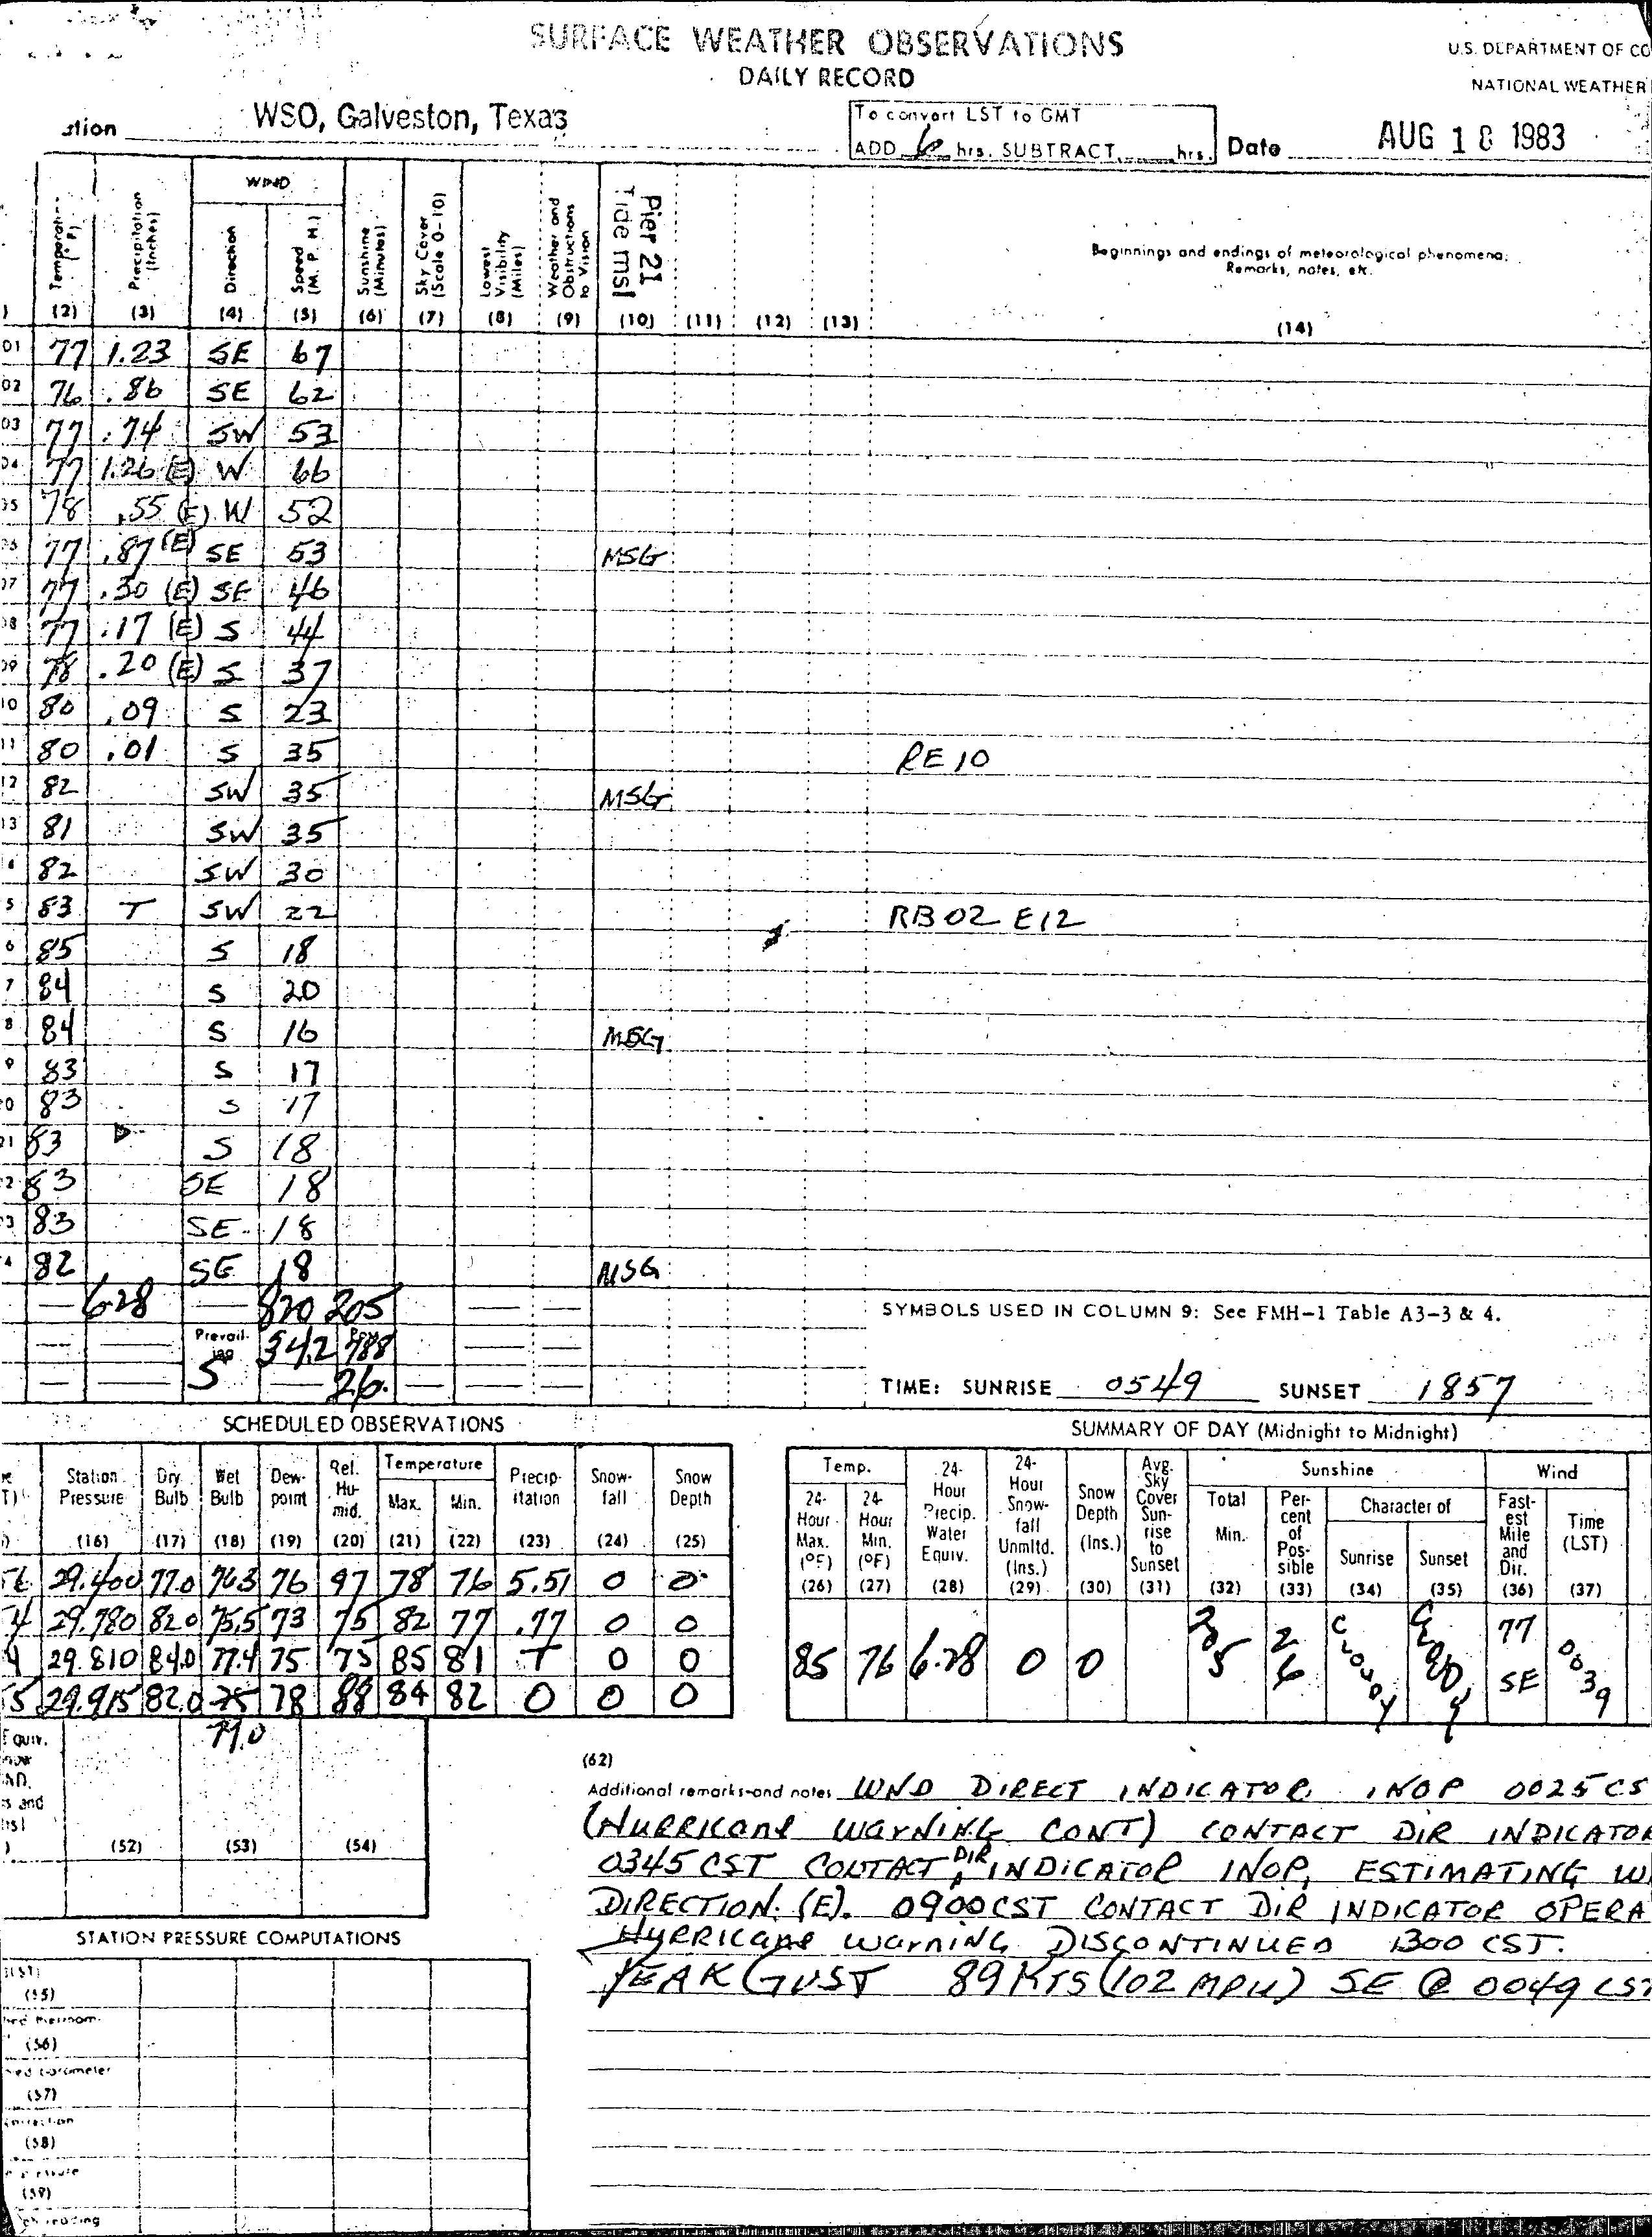 SURFACE WEATHER OBSERVATIONS
DAILY RECORD
U.S. DEPARTMENT OF CO
NATIONAL WEATHER
WSO, Galveston, Texas
To convert LST to GMT
ADD 6 hrs. SUBTRACT hrs.
Date AUG 18 1983
WIND
Temperature (° F)
Precipitation (Inches)
Direction
Speed (M. P. H.)
Sunshine (Minutes)
Sky Cover (Scale 0-10)
Lowest Visibility (Miles)
Weather and Obstructions to Vision
Pier 21 Tide msl
Beginnings and endings of meteorological phenomena; Remarks, notes, etc.
(2) (3) (4) (5) (6) (7) (8) (9) (10) (11) (12) (13) (14)
01 77 1.23 SE 67
02 76 .86 SE 62
03 77 .74 SW 53
04 77 1.26 (E) W 66
05 78 .55 (E) W 52
06 77 .87 (E) SE 53 MSG
07 77 .30 (E) SE 46
08 77 .17 (E) S 44
09 78 .20 (E) S 37
10 80 .09 S 23
11 80 .01 S 35 RE 10
12 82 SW 35 MSG
13 81 SW 35
4 82 SW 30
5 83 T SW 22 RB02 E12
6 85 S 18
7 84 S 20
8 84 S 16 MSG
9 83 S 17
20 83 S 17
21 83 S 18
2 83 SE 18
3 83 SE 18
4 82 SE 18 MSG
— 6.28 — 820 205 — —
SYMBOLS USED IN COLUMN 9: See FMH-1 Table A3-3 & 4.
Prevailing 34.2 788
S — 26
TIME: SUNRISE 0549 SUNSET 1857
SCHEDULED OBSERVATIONS
Station Pressure
Dry Bulb
Wet Bulb
Dew-point
Rel. Hu-mid.
Temperature
Max. Min.
Precip-itation
Snow-fall
Snow Depth
(16) (17) (18) (19) (20) (21) (22) (23) (24) (25)
29.400 77.0 76.3 76 97 78 76 5.51 0 0
29.780 82.0 75.5 73 75 82 77 .77 0 0
29.810 84.0 77.4 75 75 85 81 T 0 0
29.915 82.0 75 78 88 84 82 0 0 0
79.0
SUMMARY OF DAY (Midnight to Midnight)
Temp.
24-Hour Max. (°F)
24-Hour Min. (°F)
24-Hour Precip. Water Equiv.
24-Hour Snow-fall Unmltd. (Ins.)
Snow Depth (Ins.)
Avg. Sky Cover Sun-rise to Sunset
Sunshine
Total Min.
Per-cent of Pos-sible
Character of
Sunrise Sunset
Wind
Fast-est Mile and Dir.
Time (LST)
(26) (27) (28) (29) (30) (31) (32) (33) (34) (35) (36) (37)
85 76 6.28 0 0 205 26 CLOUDY CLOUDY 77 SE 0039
Equiv.
(52) (53) (54)
(62)
Additional remarks and notes WND DIRECT INDICATOR INOP 0025 CS
(HURRICANE WARNING CONT) CONTACT DIR INDICATOR
0345 CST CONTACT DIR INDICATOR INOP, ESTIMATING W
DIRECTION. (E). 0900 CST CONTACT DIR INDICATOR OPERA
HURRICANE WARNING DISCONTINUED 1300 CST.
PEAK GUST 89 KTS (102 MPH) SE @ 0049 CST
STATION PRESSURE COMPUTATIONS
(56)
(57)
(58)
(59)